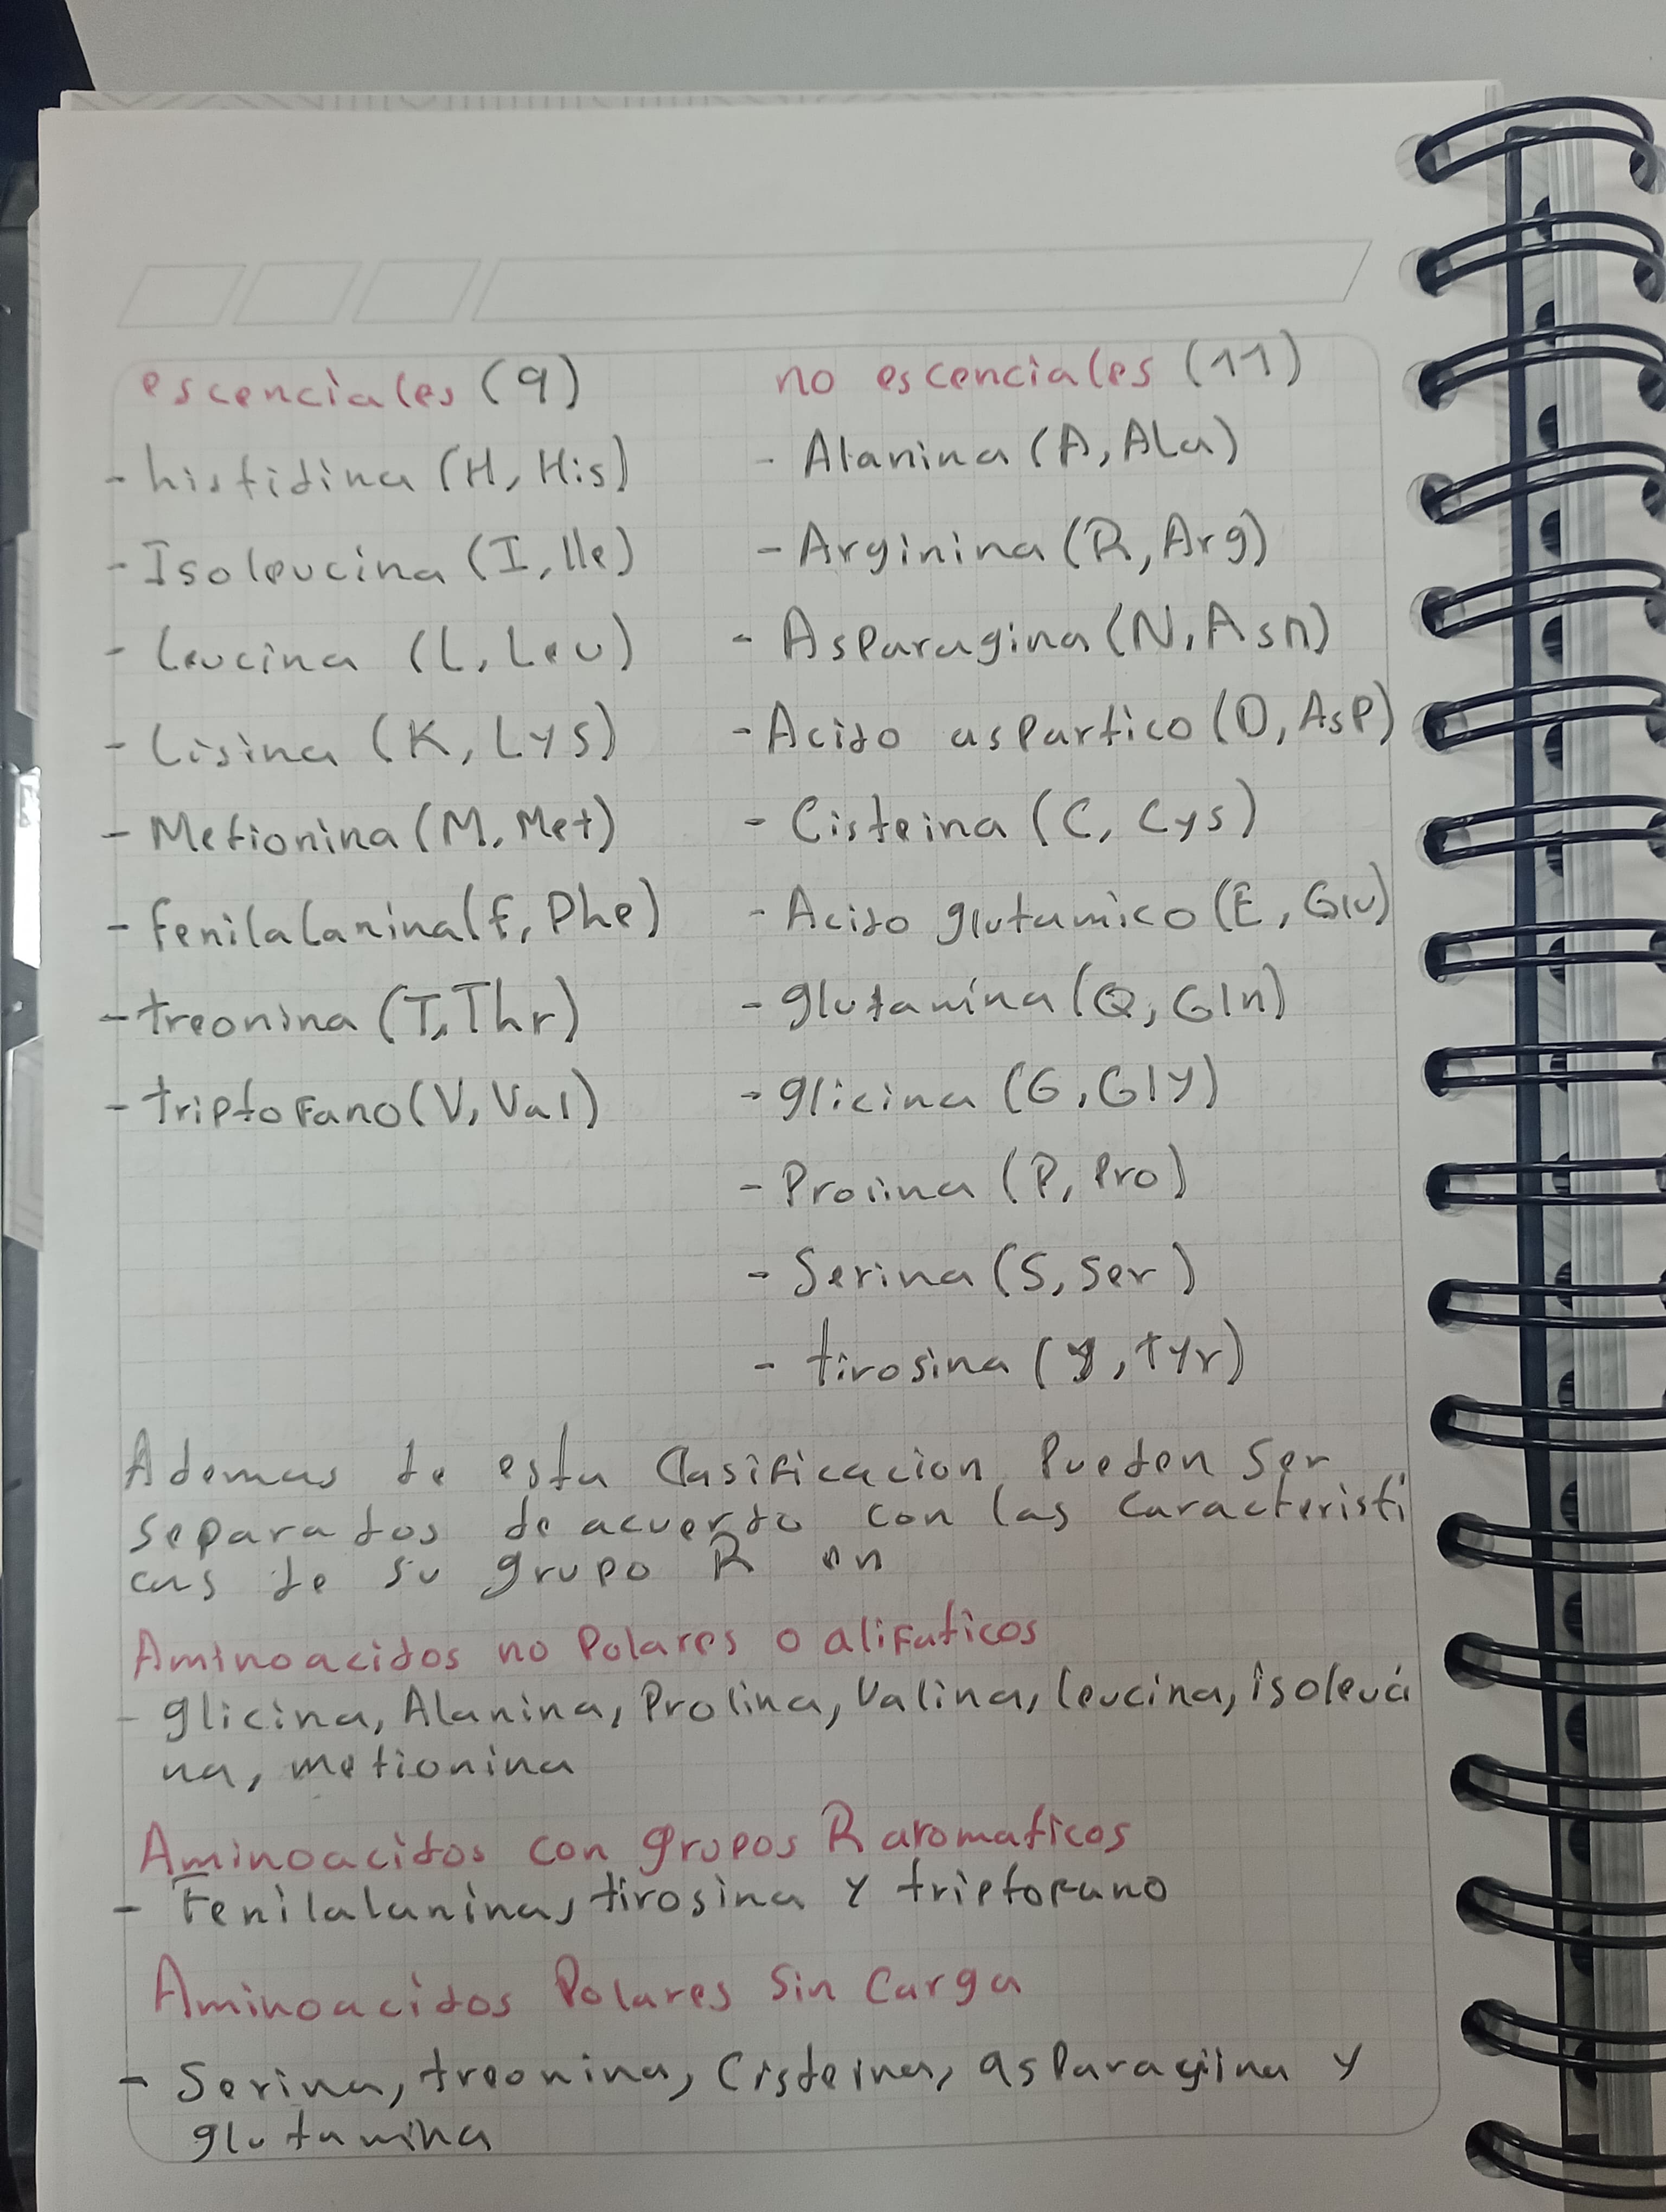 escenciales (9)
- histidina (H, His)
- Isoleucina (I, Ile)
- leucina (L, Leu)
- lisina (K, Lys)
- Metionina (M, Met)
- fenilalanina (f, Phe)
- treonina (T, Thr)
- triptofano (V, Val)
no escenciales (11)
- Alanina (A, Ala)
- Arginina (R, Arg)
- Asparagina (N, Asn)
- Acido aspartico (D, Asp)
- Cisteina (C, Cys)
- Acido glutamico (E, Glu)
- glutamina (Q, Gln)
- glicina (G, Gly)
- Prolina (P, Pro)
- Serina (S, Ser)
- tirosina (y, tyr)
Ademas de esta Clasificacion Pueden Ser
separados de acuerdo con las caracteristi
cas de su grupo R en
Aminoacidos no Polares o alifaticos
- glicina, Alanina, Prolina, Valina, leucina, isoleuci
na, metionina
Aminoacidos con grupos R aromaticos
- Fenilalanina, tirosina y triptofano
Aminoacidos Polares Sin Carga
- Serina, treonina, Cisteina, asparagiina y
glutamina